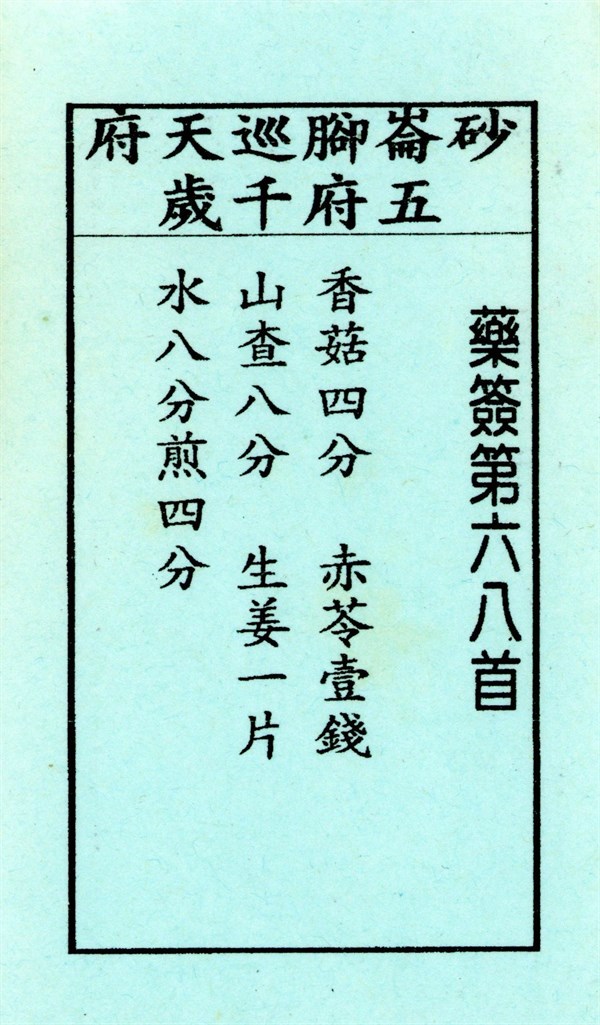 砂崙腳巡天府
五府千歲
藥簽第六八首
香菇四分 赤苓壹錢
山查八分 生姜一片
水八分煎四分